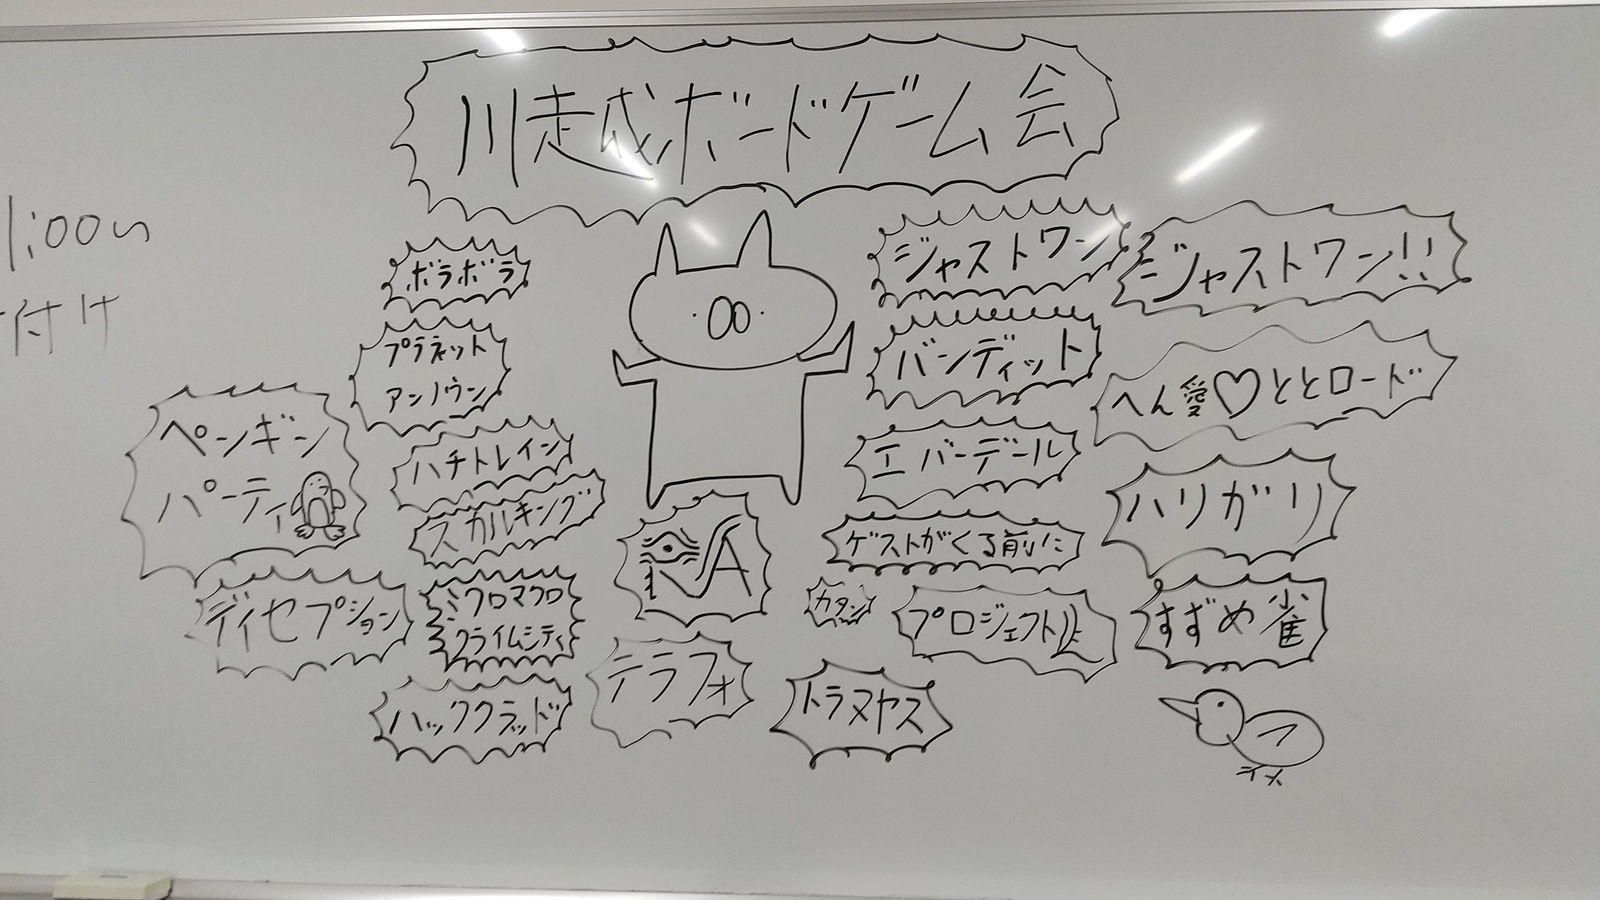 川越ボードゲーム会
1:00
付け
ボラボラ
プラネット
アンノウン
ペンギン
パーティ
ハチトレイン
スカルキング
ディセプション
ミクロマクロ
クライムシティ
ハッククラッド
RA
テラフォ
ジャストワン
ジャストワン!!
バンディット
へん愛♡ととロード
エバーデール
ハリガリ
ゲストがくる前に
カタン
プロジェクトL
すずめ雀
トラヌヤス